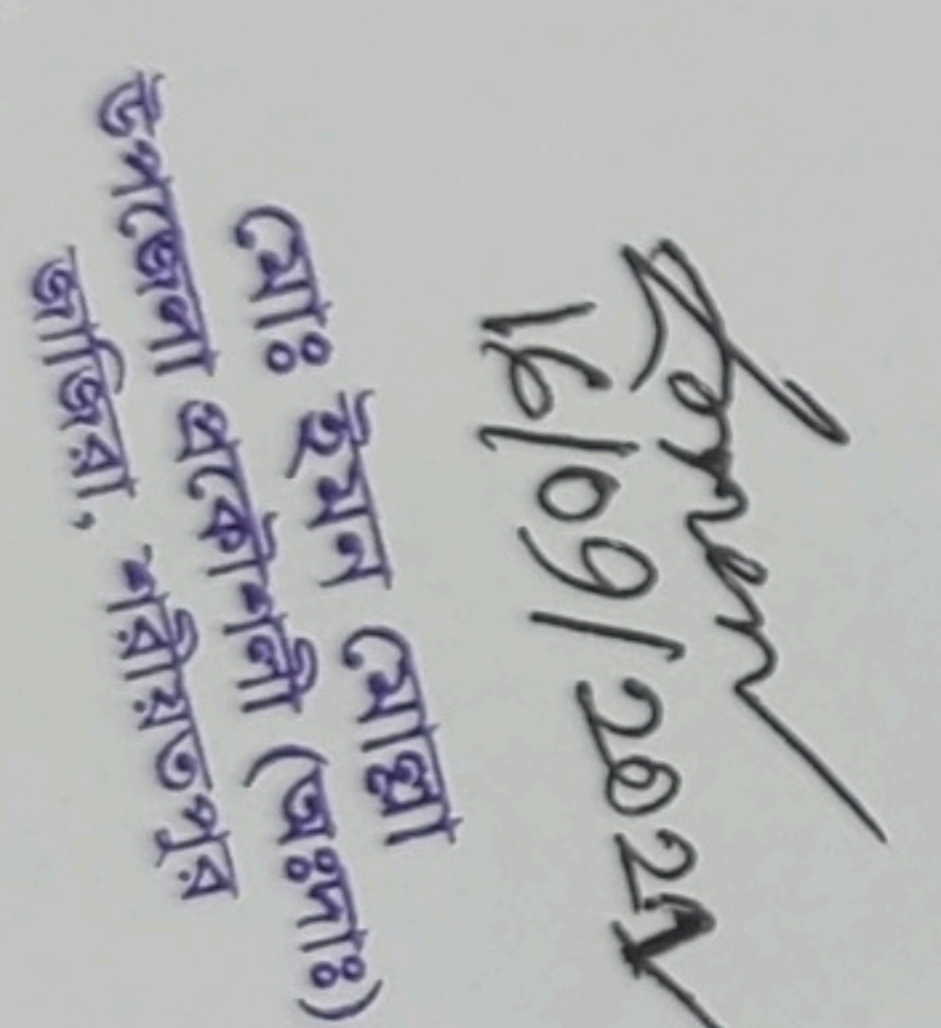 16/09/202
মোঃ ইমন মোল্লা
উপজেলা প্রকৌশলী (অঃদাঃ)
জাজিরা, শরীয়তপুর